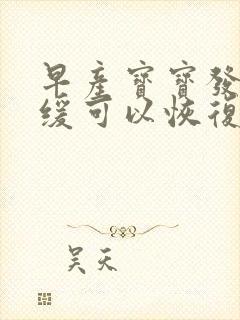 早產寶寶發
緩可以恢復
吴天